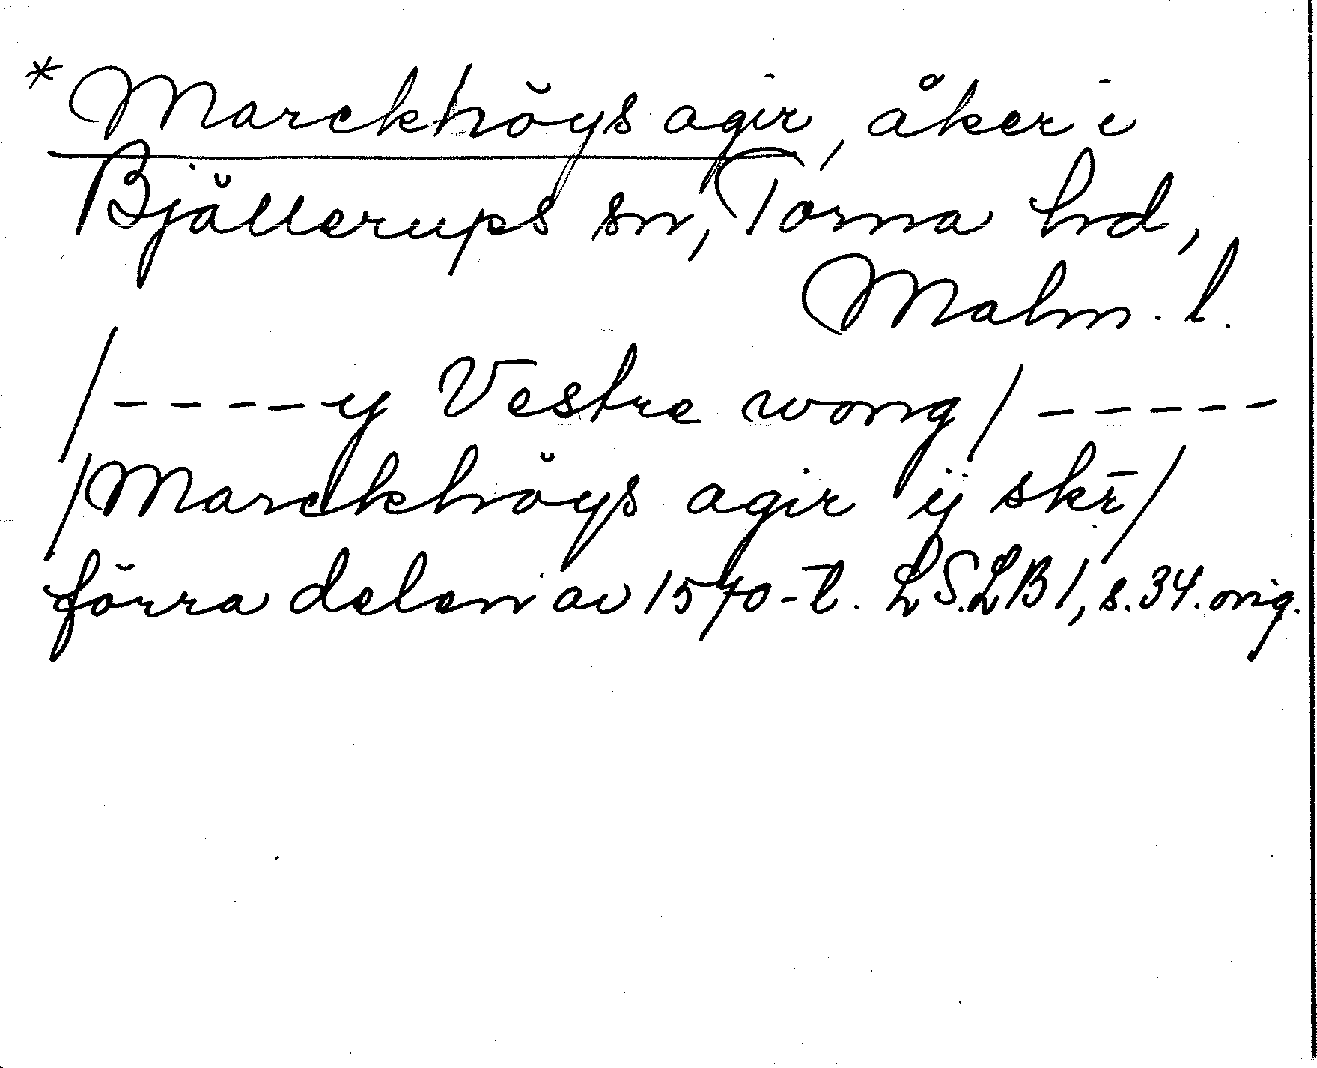 * Marckhöys agir, åker i
Bjällerups sn, Torna hd,
Malm. l.
/-----y Vestre wong/-----
/Marckhöys agir ij skr̄/
förra delen av 1570-t. LSLB 1, s. 34. orig.